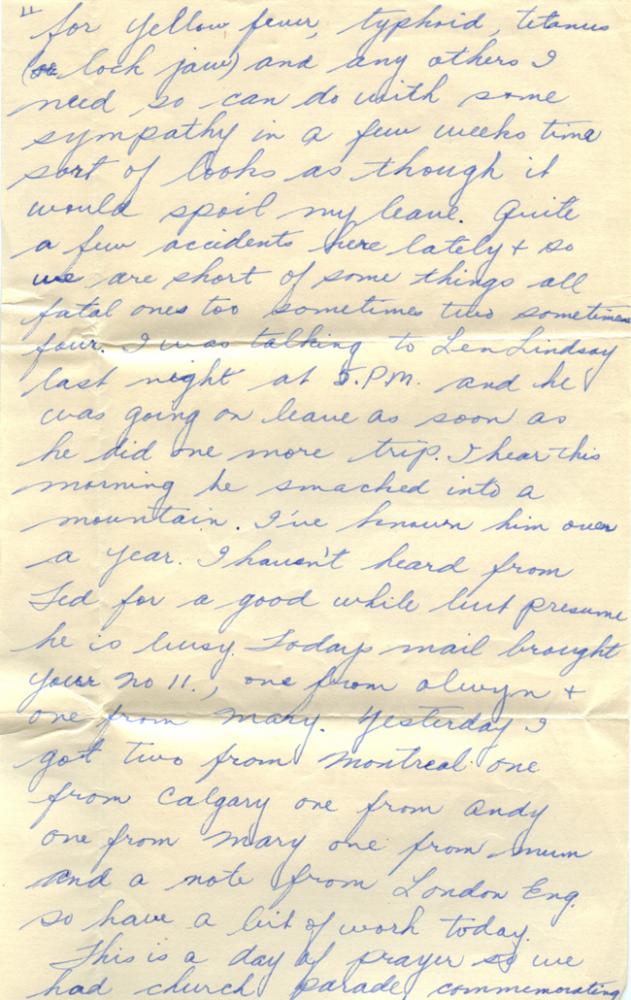 " for yellow fever, typhoid, tetanus
(or lock jaw) and any others I
need so can do with some
sympathy in a few weeks time
sort of looks as though it
would spoil my leave. Quite
a few accidents here lately + so
we are short of some things all
fatal ones too sometimes two sometimes
four. I was talking to Len Lindsay
last night at 5.P.M. and he
was going on leave as soon as
he did one more trip. I hear this
morning he smacked into a
mountain. I've known him over
a year. I haven't heard from
Ted for a good while but presume
he is busy. Todays mail brought
your no 11., one from Olwyn +
one from Mary. Yesterday I
got two from Montreal one
from Calgary one from Andy
one from Mary one from mum
and a note from London Eng.
so have a bit of work today.
This is a day of prayer so we
had church parade commemorating